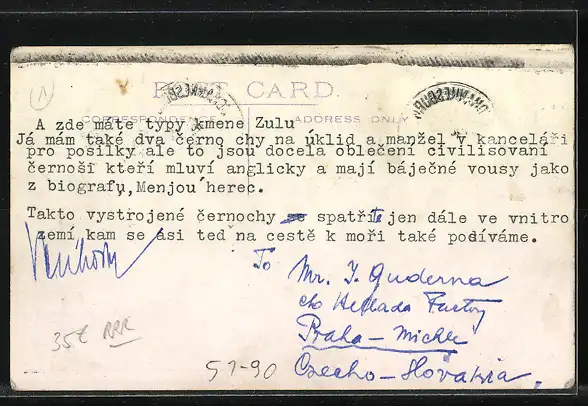 1
POST CARD.
CORRESPONDENCE ADDRESS ONLY
A zde máte typy kmene Zulu
Já mám také dva černo chy na úklid a manžel v kanceláři
pro posilky ale to jsou docela oblečení civilisovaní
černoši kteří mluví anglicky a mají báječné vousy jako
z biografu,Menjou herec.
Takto vystrojené černochy spatříte jen dále ve vnitro
zemí kam se asi teď na cestě k moři také podíváme.
To Mr. J. Guderna
c/o Hellada Factory
Praha-Michle
Czecho-Slovakia.
35Z RRR
51-90